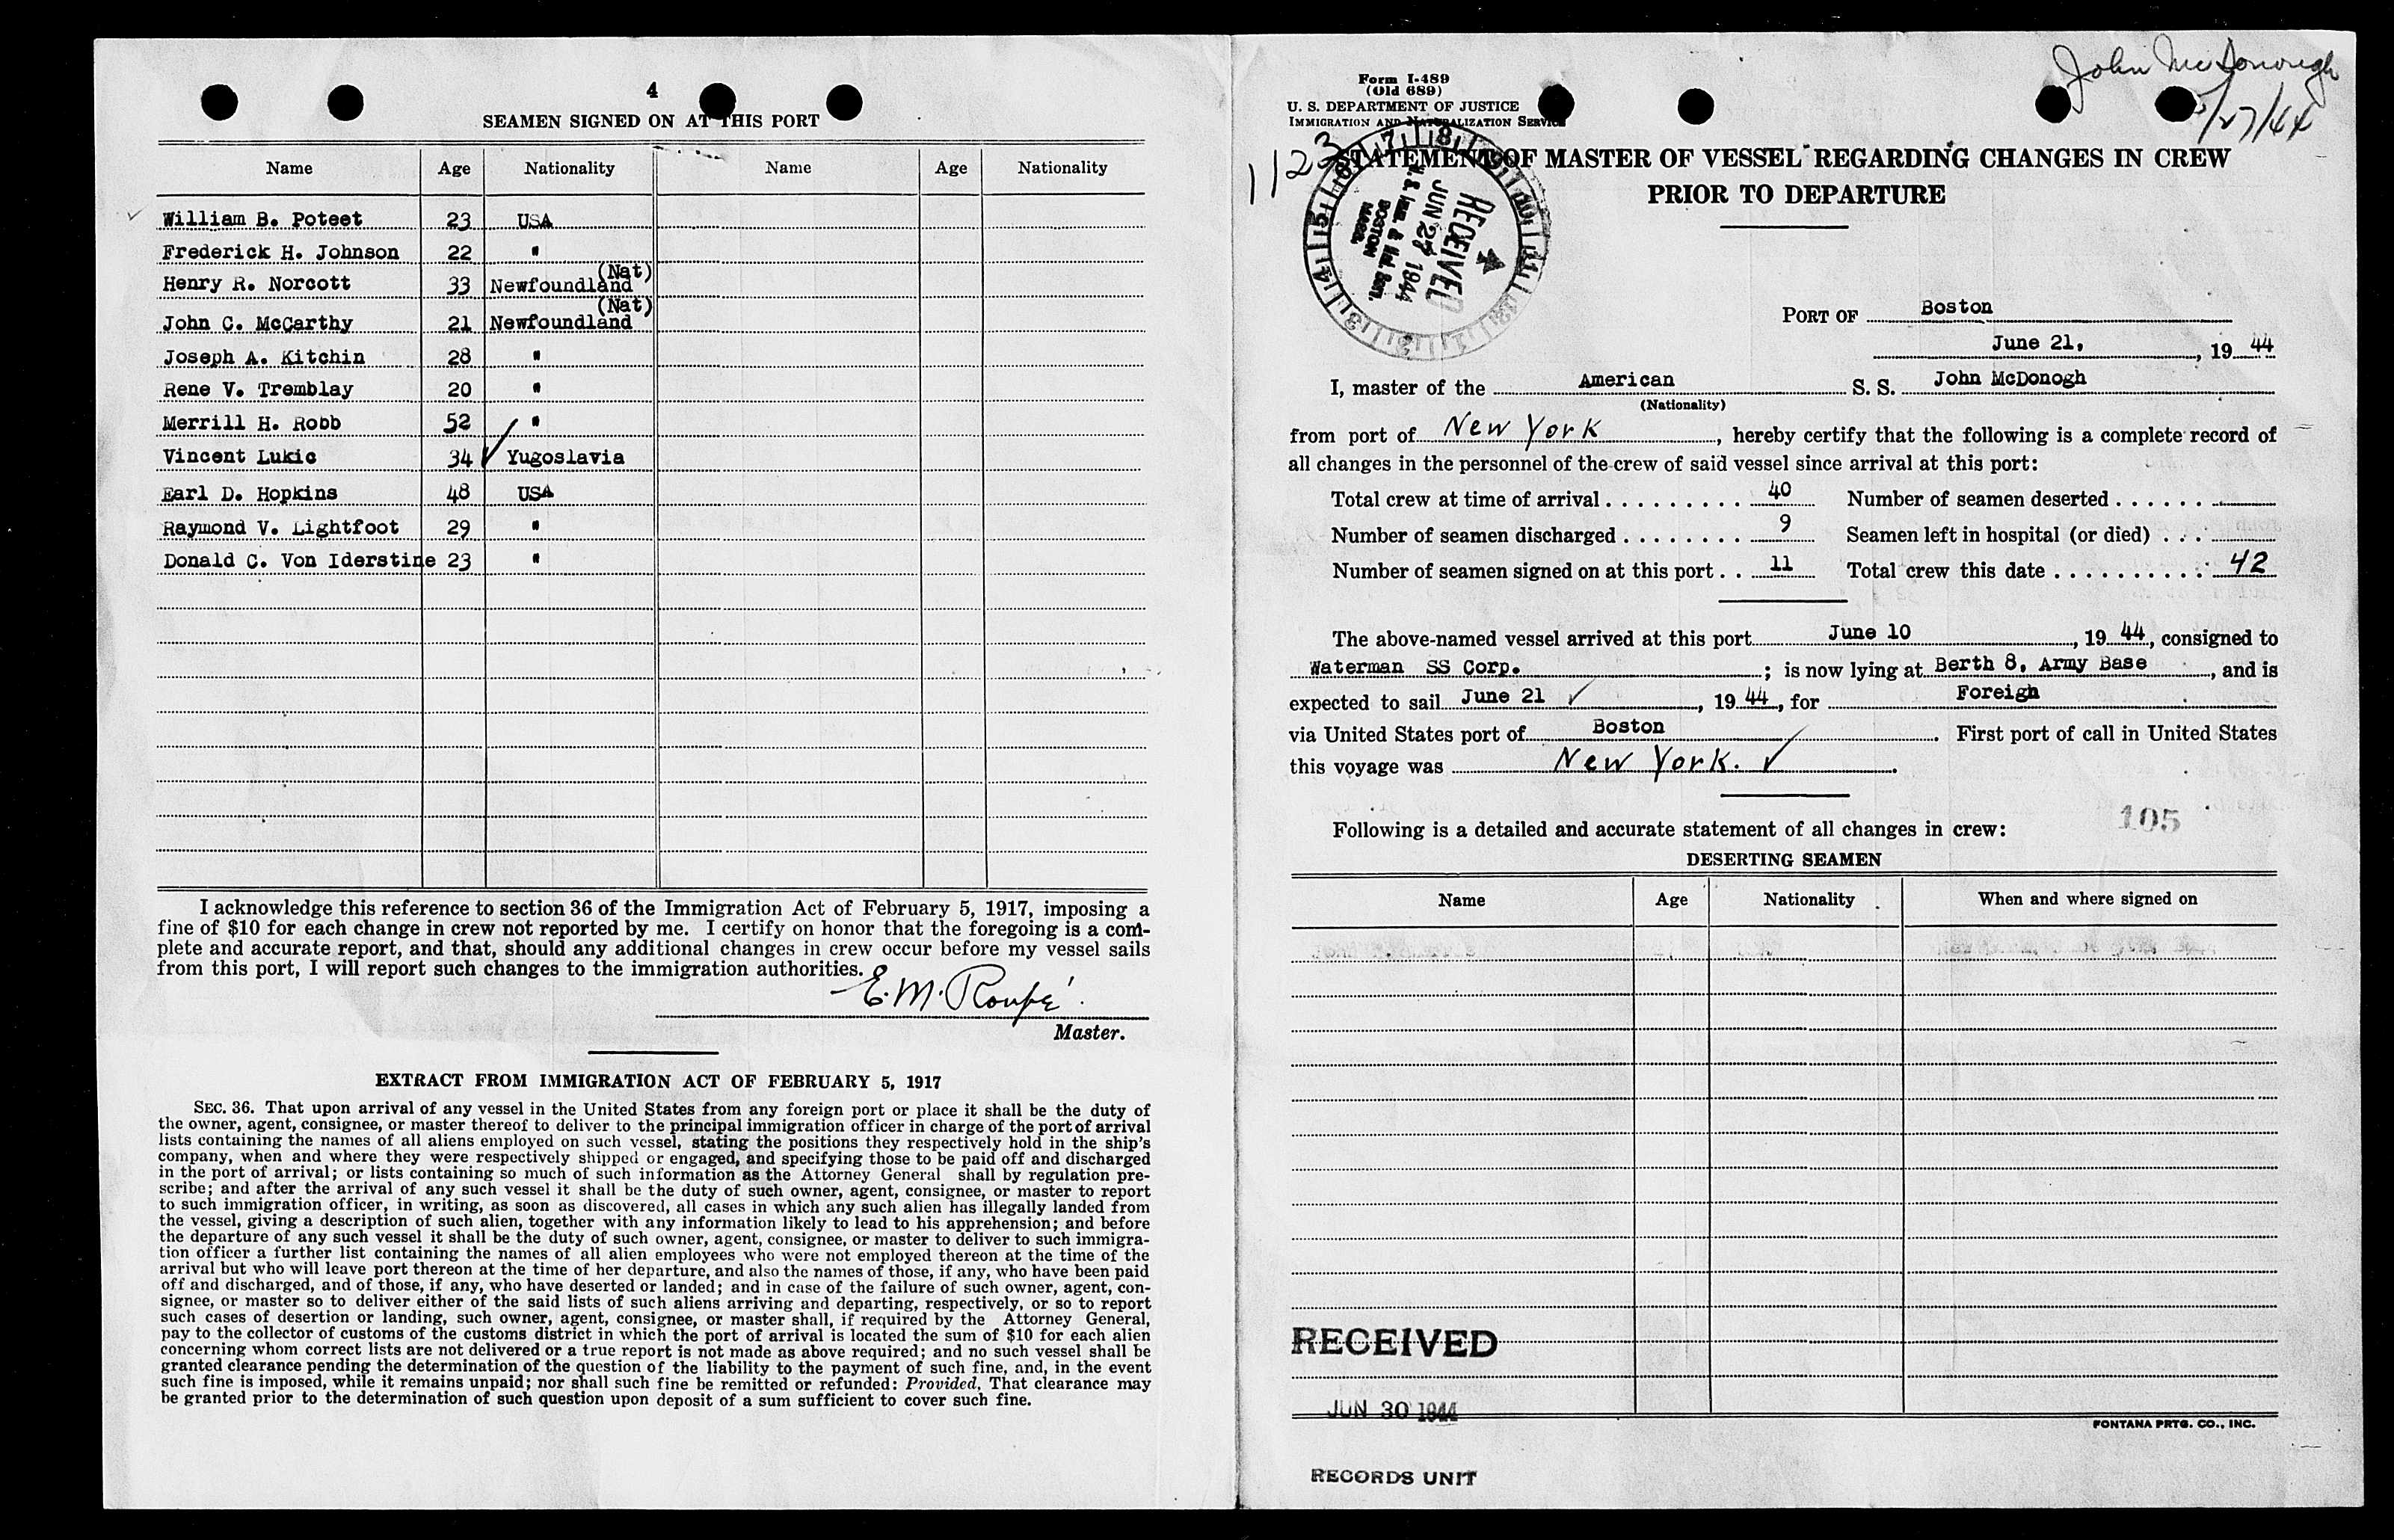 4
SEAMEN SIGNED ON AT THIS PORT
Name Age Nationality Name Age Nationality
William B. Poteet 23 USA
Frederick H. Johnson 22 "
Henry R. Norcott 33 Newfoundland (Nat)
John C. McCarthy 21 Newfoundland (Nat)
Joseph A. Kitchin 28 "
Rene V. Tremblay 20 "
Merrill H. Robb 52 "
Vincent Lukic 34 ✓ Yugoslavia
Earl D. Hopkins 48 USA
Raymond V. Lightfoot 29 "
Donald C. Von Iderstine 23 "
I acknowledge this reference to section 36 of the Immigration Act of February 5, 1917, imposing a
fine of $10 for each change in crew not reported by me. I certify on honor that the foregoing is a com-
plete and accurate report, and that, should any additional changes in crew occur before my vessel sails
from this port, I will report such changes to the immigration authorities.
E. M. Roupé
Master.
EXTRACT FROM IMMIGRATION ACT OF FEBRUARY 5, 1917
SEC. 36. That upon arrival of any vessel in the United States from any foreign port or place it shall be the duty of
the owner, agent, consignee, or master thereof to deliver to the principal immigration officer in charge of the port of arrival
lists containing the names of all aliens employed on such vessel, stating the positions they respectively hold in the ship's
company, when and where they were respectively shipped or engaged, and specifying those to be paid off and discharged
in the port of arrival; or lists containing so much of such information as the Attorney General shall by regulation pre-
scribe; and after the arrival of any such vessel it shall be the duty of such owner, agent, consignee, or master to report
to such immigration officer, in writing, as soon as discovered, all cases in which any such alien has illegally landed from
the vessel, giving a description of such alien, together with any information likely to lead to his apprehension; and before
the departure of any such vessel it shall be the duty of such owner, agent, consignee, or master to deliver to such immigra-
tion officer a further list containing the names of all alien employees who were not employed thereon at the time of the
arrival but who will leave port thereon at the time of her departure, and also the names of those, if any, who have been paid
off and discharged, and of those, if any, who have deserted or landed; and in case of the failure of such owner, agent, con-
signee, or master so to deliver either of the said lists of such aliens arriving and departing, respectively, or so to report
such cases of desertion or landing, such owner, agent, consignee, or master shall, if required by the Attorney General,
pay to the collector of customs of the customs district in which the port of arrival is located the sum of $10 for each alien
concerning whom correct lists are not delivered or a true report is not made as above required; and no such vessel shall be
granted clearance pending the determination of the question of the liability to the payment of such fine, and, in the event
such fine is imposed, while it remains unpaid; nor shall such fine be remitted or refunded: Provided, That clearance may
be granted prior to the determination of such question upon deposit of a sum sufficient to cover such fine.
John McDonough
Form I-489
(Old 689)
U. S. DEPARTMENT OF JUSTICE
IMMIGRATION AND NATURALIZATION SERVICE
1123
STATEMENT OF MASTER OF VESSEL REGARDING CHANGES IN CREW
PRIOR TO DEPARTURE
RECEIVED
JUN 27 1944
BOSTON
MASS.
PORT OF Boston
June 21, , 19 44
I, master of the American S. S. John McDonogh
(Nationality)
from port of New York , hereby certify that the following is a complete record of
all changes in the personnel of the crew of said vessel since arrival at this port:
Total crew at time of arrival . . . . . . . . . 40 Number of seamen deserted . . . . . .
Number of seamen discharged . . . . . . . . 9 Seamen left in hospital (or died) . . .
Number of seamen signed on at this port . . 11 Total crew this date . . . . . . . . . . 42
The above-named vessel arrived at this port June 10 , 19 44, consigned to
Waterman SS Corp. ; is now lying at Berth 8, Army Base , and is
expected to sail June 21 ✓ , 19 44 , for Foreign
via United States port of Boston . First port of call in United States
this voyage was New York. ✓ .
105
Following is a detailed and accurate statement of all changes in crew:
DESERTING SEAMEN
Name Age Nationality When and where signed on
RECEIVED
JUN 30 1944
FONTANA PRTG. CO., INC.
RECORDS UNIT